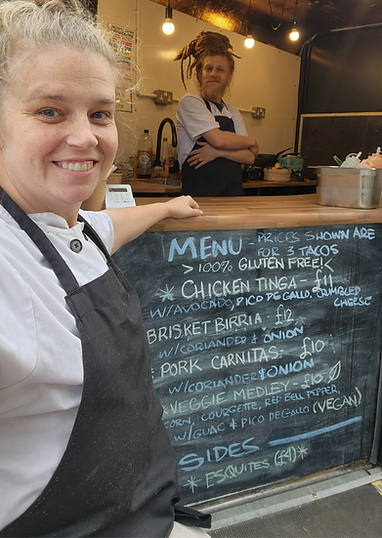 MENU - PRICES SHOWN ARE
FOR 3 TACOS
> 100% GLUTEN FREE! <
* CHICKEN TINGA - £11
W/ AVOCADO, PICO DE GALLO, CRUMBLED
CHEESE
BRISKET BIRRIA - £12
W/ CORIANDER & ONION
PORK CARNITAS - £10
W/ CORIANDER & ONION
VEGGIE MEDLEY - £10
CORN, COURGETTE, RED BELL PEPPER,
W/ GUAC & PICO DE GALLO (VEGAN)
SIDES
* ESQUITES (£4) *